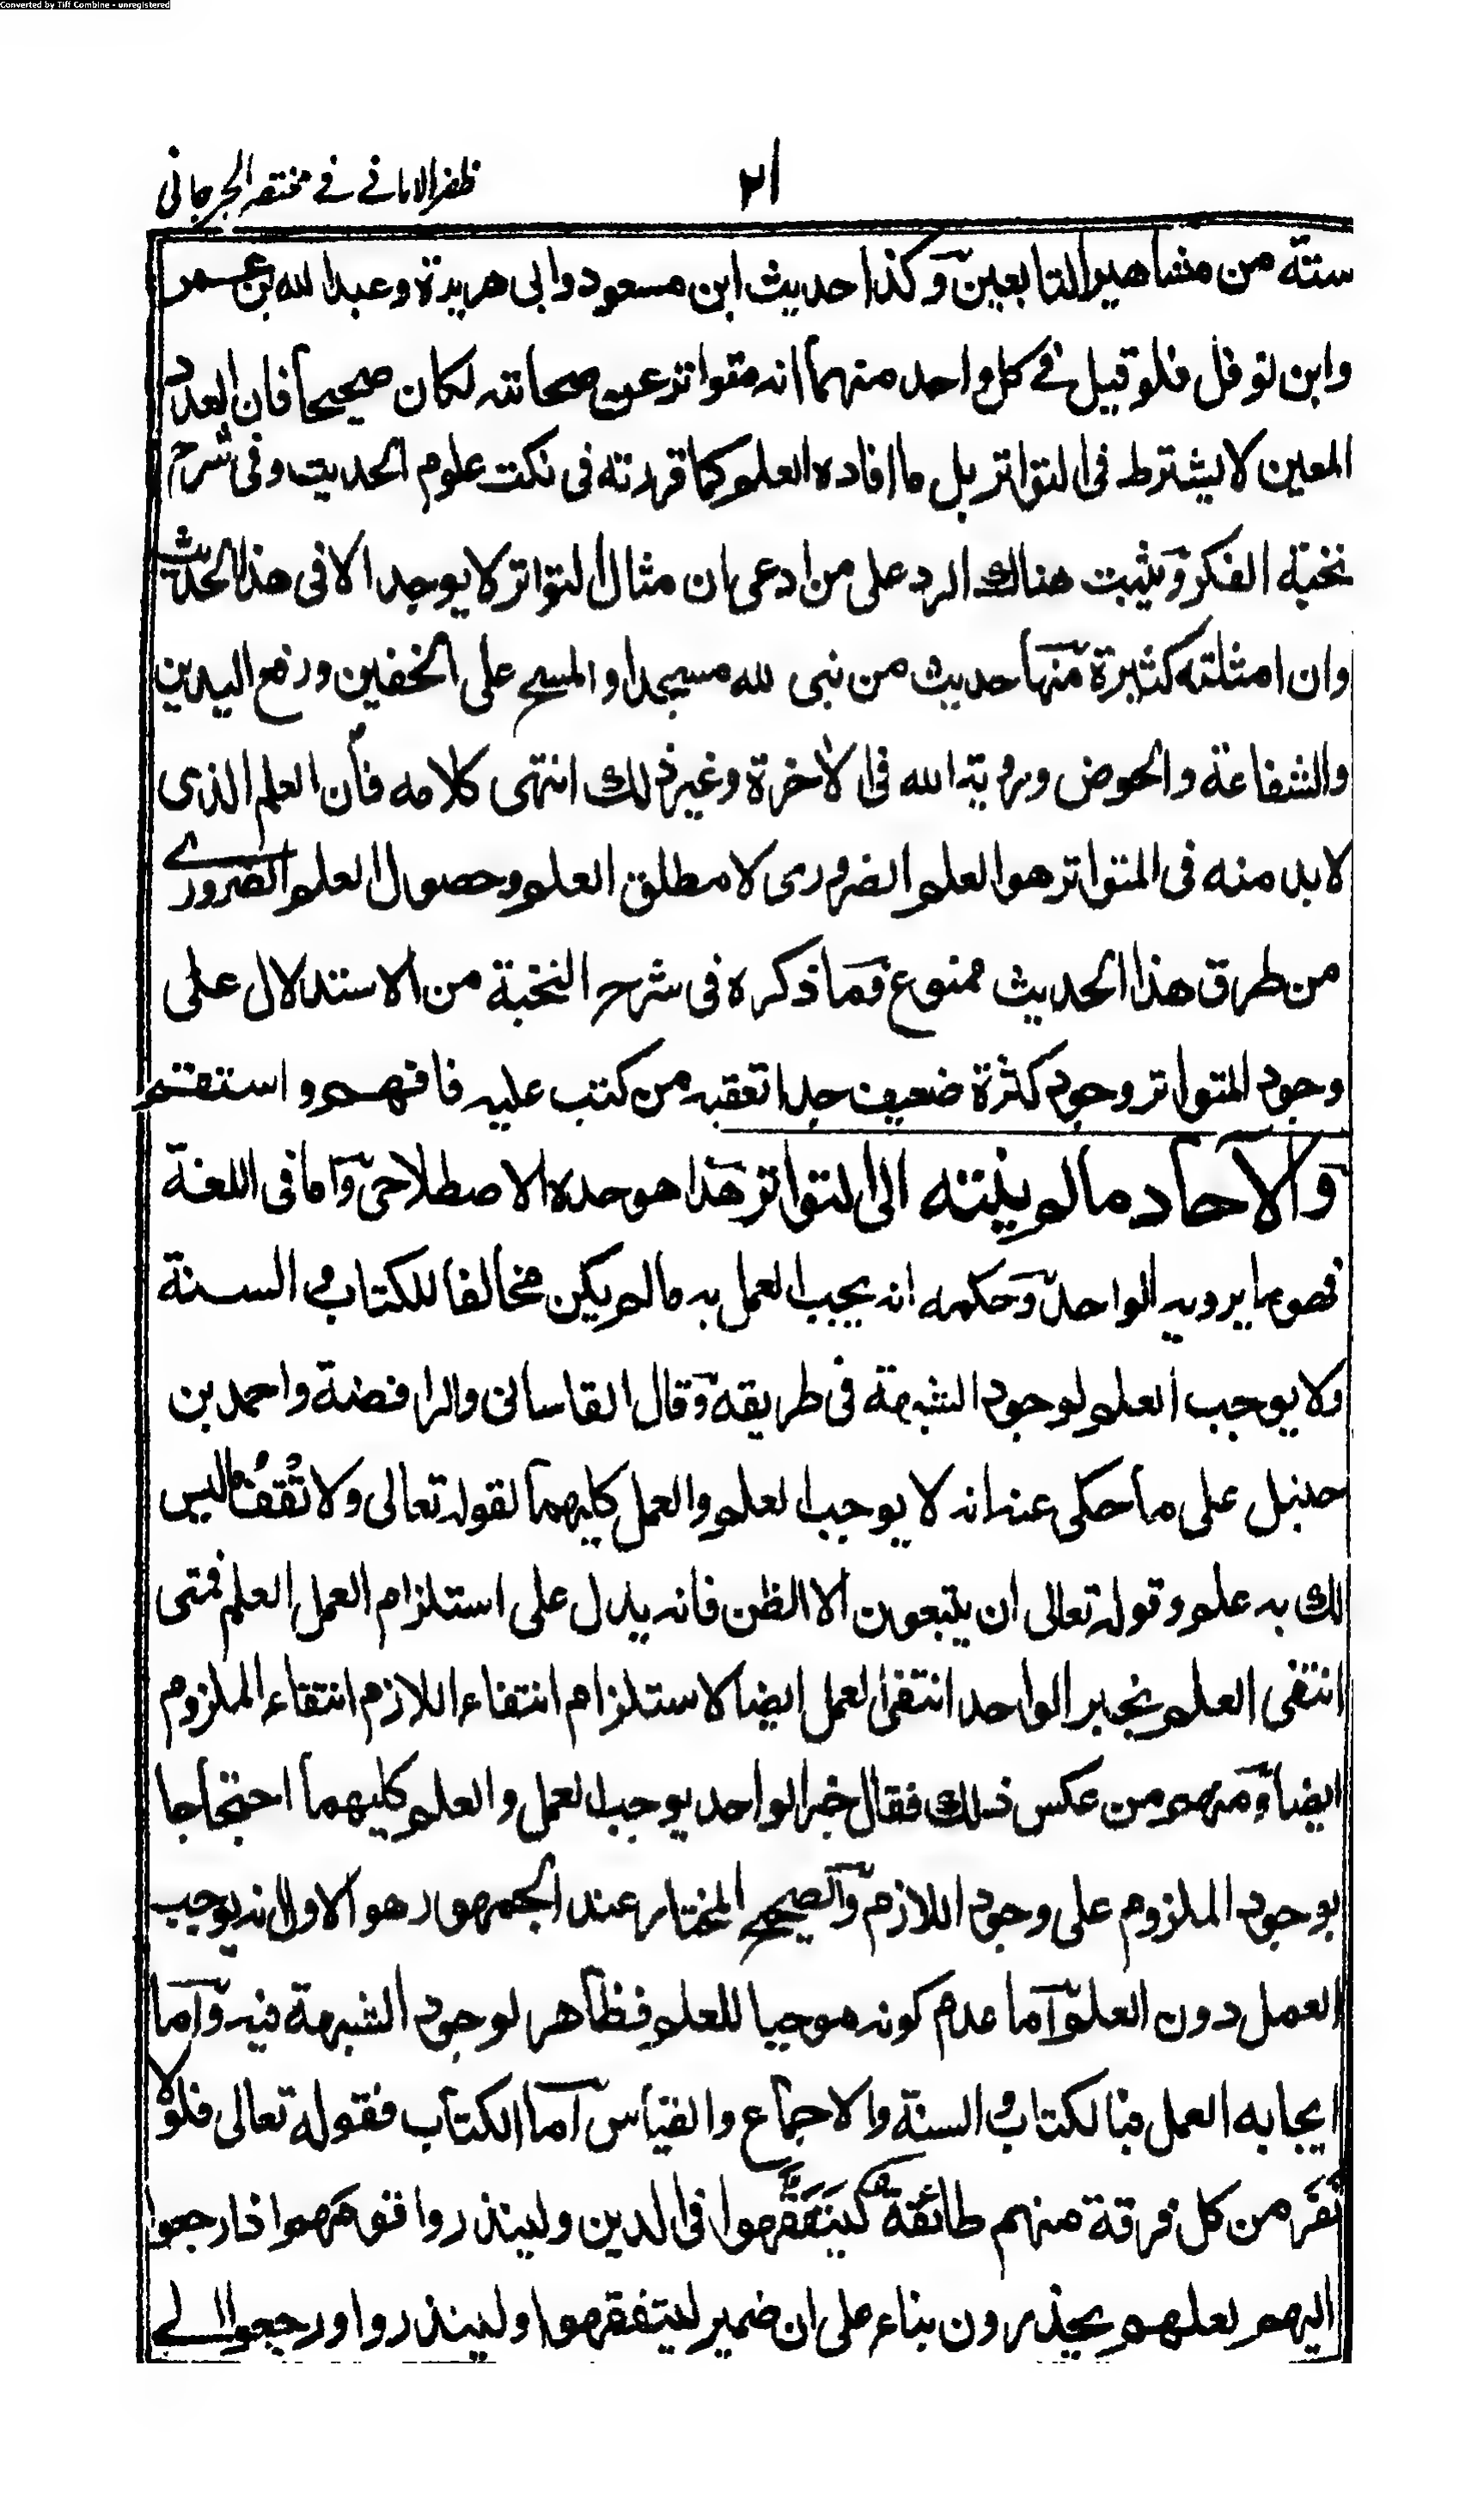 Converted by Tiff Combine - unregistered
ظفر الامانے فے مختصر الجرجانی
٢١
ستة من مشاهير التابعين وكذا حديث ابن مسعود وابی هريرة وعبد الله بن عمر
وابن نوفل فلو قيل فے كل واحد منهما انه متواتر عن صحابته لكان صحيحا فان العدد
المعين لا يشترط فی التواتر بل ما افاده العلم كما قررته فی نكت علوم الحديث وفی شرح
نخبة الفكر وبيّنت هناك الرد على من ادعى ان مثال التواتر لا يوجد الا فی هذا الحديث
وان امثلته كثيرة منها حديث من بنی لله مسجدا والمسح على الخفين ورفع اليدين
والشفاعة والحوض ورؤية الله فی الاخرة وغير ذلك انتهى كلامه فان العلم الذی
لا بد منه فی المتواتر هو العلم الضروری لا مطلق العلم وحصول العلم الضروری
من طرق هذا الحديث ممنوع فما ذكره فی شرح النخبة من الاستدلال على
وجود المتواتر وجود كثرة ضعيف جدا تعقبه من كتب عليه فافهم واستقم
والآحاد ما لم ينته الى التواتر هذا هو حده الاصطلاحی واما فی اللغة
فهو ما يرويه الواحد وحكمه انه يجب العمل به ما لم يكن مخالفا للكتاب والسنة
ولا يوجب العلم لوجود الشبهة فی طريقه وقال القاسانی والرافضة واحمد بن
حنبل على ما حكى عنه انه لا يوجب العلم والعمل كليهما لقوله تعالى ولا تقف ما ليس
لك به علم وقوله تعالى ان يتبعون الا الظن فانه يدل على استلزام العمل العلم فمتى
انتفى العلم بخبر الواحد انتفى العمل ايضا لاستلزام انتفاء اللازم انتفاء الملزوم
ايضا ومنهم من عكس ذلك فقال خبر الواحد يوجب العمل والعلم كليهما احتجاجا
بوجود الملزوم على وجود اللازم والصحيح المختار عند الجمهور هو الاول انه يوجب
العمل دون العلم اما عدم كونه موجبا للعلم فظاهر لوجود الشبهة فيه واما
ايجابه العمل فبالكتاب والسنة والاجماع والقياس اما الكتاب فقوله تعالى فلولا
نَفَرَ من كل فرقة منهم طائفة لِيَتَفَقَّهوا فی الدين ولينذروا قومهم اذا رجعوا
اليهم لعلهم يحذرون بناء على ان ضمير ليتفقهوا ولينذروا ورجعوا الے